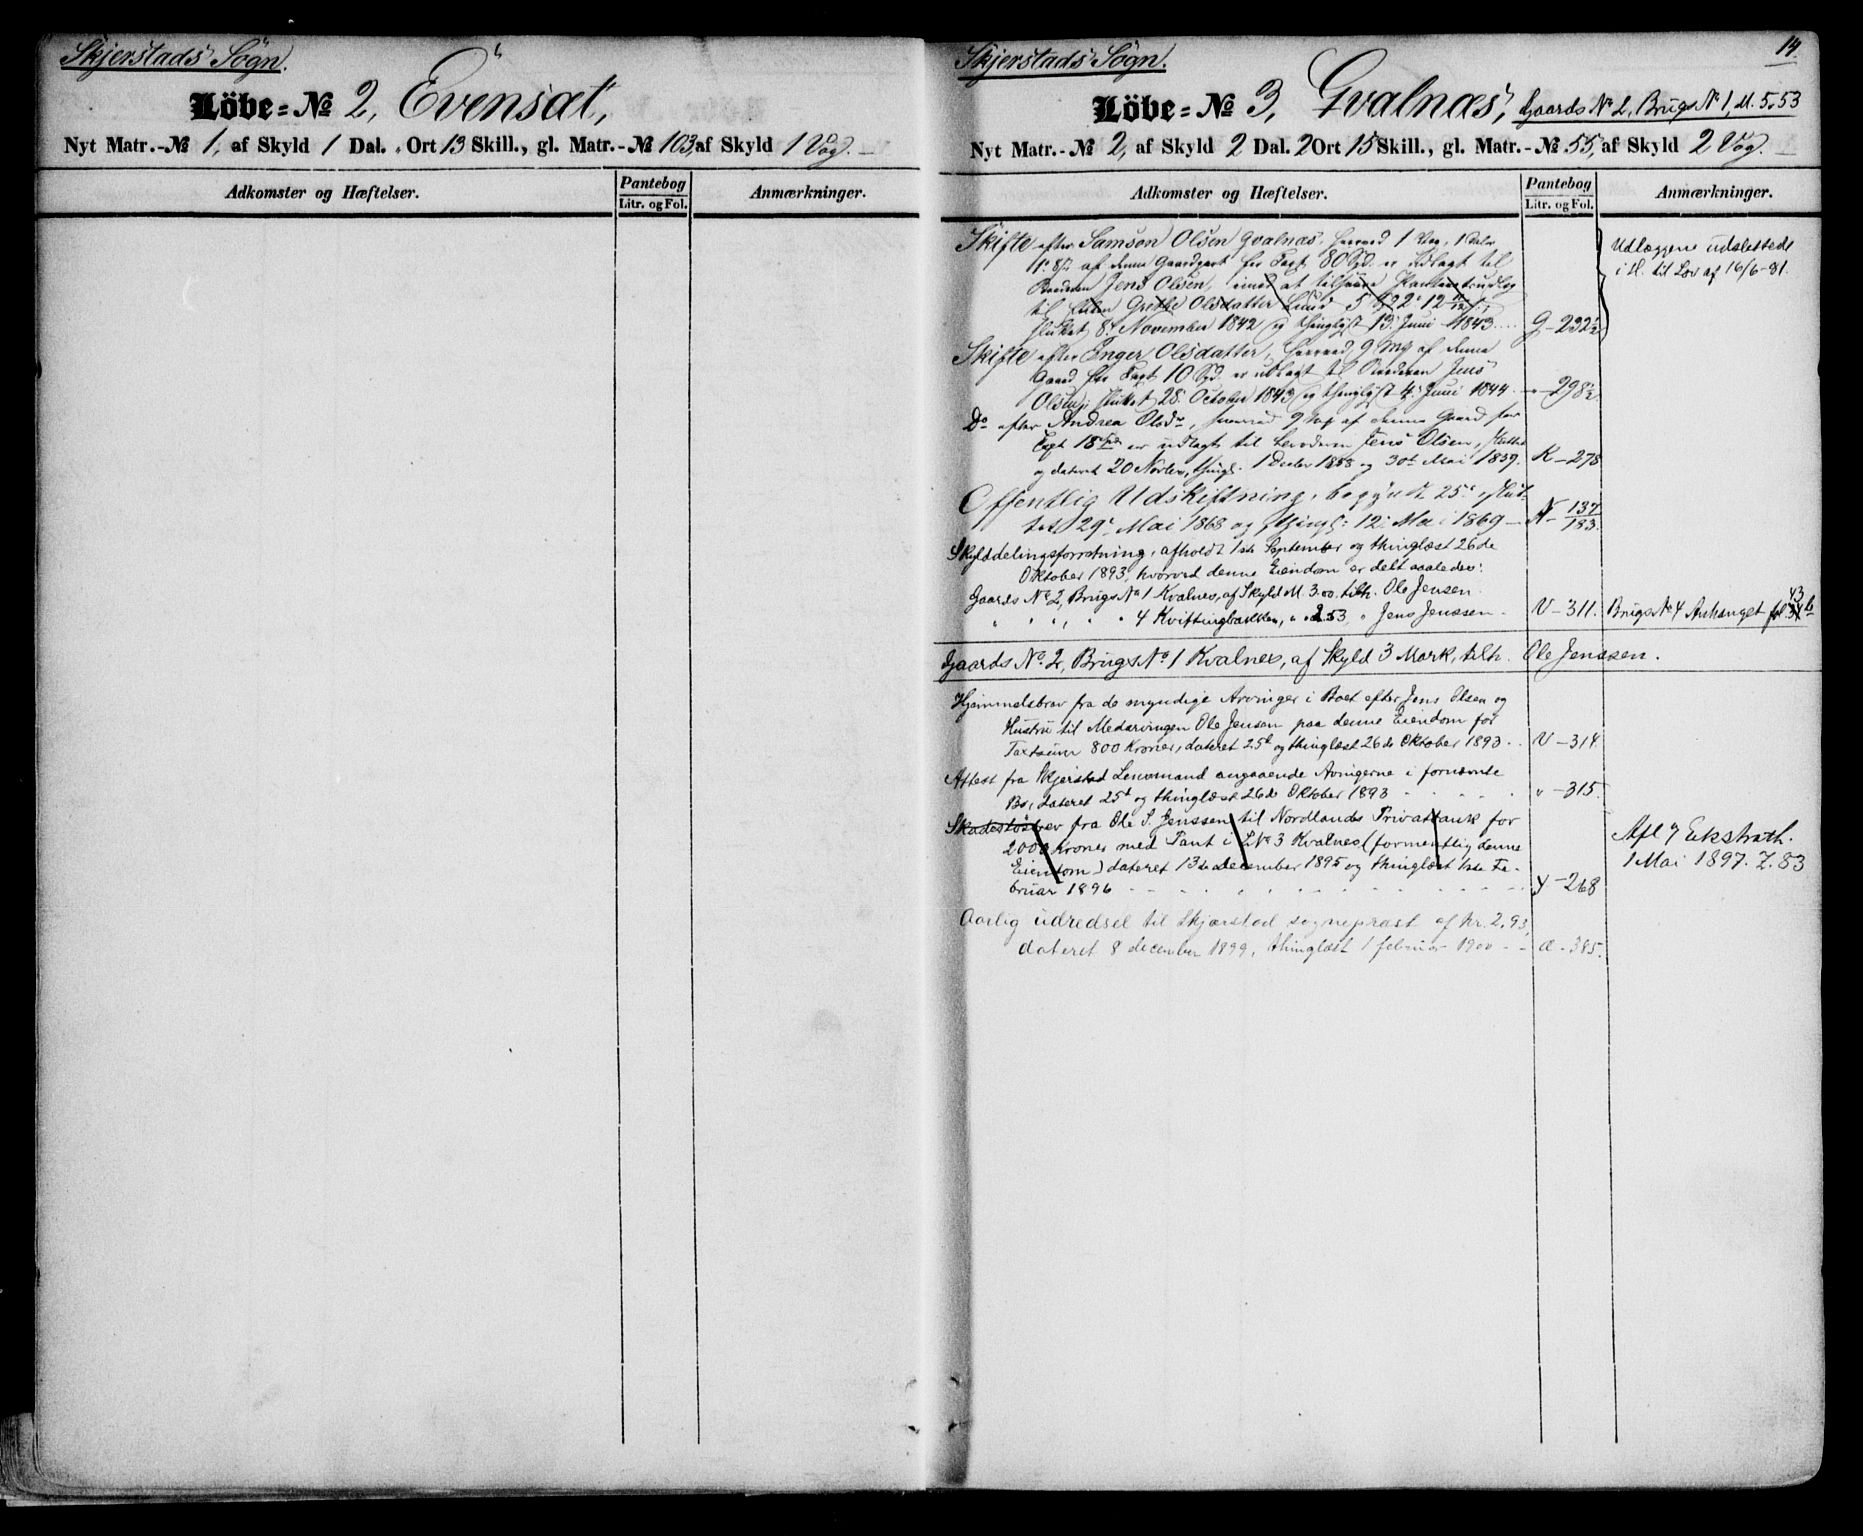 Skjerstads Sogn.
Löbe=No 2, Evensæt,
Nyt Matr.-No 1, af Skyld 1 Dal. „ Ort 13 Skill., gl. Matr.-No 103, af Skyld 1 Vog.
Adkomster og Hæftelser.
Pantebog
Litr. og Fol.
Anmærkninger.
14.
Skjerstads Sogn.
Löbe=No 3, Gvalnæs, Gaards No 2, Brugs No 1, M. 5.53
Nyt Matr.-No 2, af Skyld 2 Dal. 2 Ort 15 Skill., gl. Matr.-No 55, af Skyld 2 Vog.
Adkomster og Hæftelser.
Pantebog
Litr. og Fol.
Anmærkninger.
Skifte efter Samson Olsen Gvalnæs, hvorved 1 Vog, 1 Daler
af denne Gaardpart for Taxt 80 Spd. er udlagt til
Broderen Jens Olsen, imod at
til Enken Grethe Olsdatter Lund 5 22 12
sluttet 8. November 1842 og thinglyst 13. Juni 1843. G – 292½
Udlæggene udslettede
i H. til Lov af 16/6-81.
Skifte efter Inger Olsdatter, hvorved 9 Mg af denne
Gaard for Taxt 10 Spd. er udlagt til Broderen Jens
Olsen, sluttet 28. October 1843 og thinglyst 4. Juni 1844. „ – 298½
Do efter Andrea Olsdr, hvorved 9 Mg af denne Gaard for
Taxt 18 Spd er udlagt til Broderen Jens Olsen, sluttet
og dateret 20 Novbr, thingl. 1 Decbr 1858 og 30te Mai 1859. K – 278
Offentlig Udskiftning, begyndt 25de, slut-
tet 29de Mai 1868 og thingl: 12. Mai 1869 – N – 137/183.
Skylddelingsforretning, afholdt 1ste September og thinglæst 26de
Oktober 1893, hvorved denne Eiendom er delt saaledes:
Gaards No 2, Brugs No 1 Kvalnes, af Skyld M. 3.00. tilh. Ole Jensen
„ „ „ „ 4 Kvittingbakken, „ „ 2.53, „ Jens Jenssen. V – 311. Brugs No 4 Anhanget fol 43 b
Gaards No 2, Brugs No 1 Kvalnes, af Skyld 3 Mark, tilh. Ole Jenssen.
Hjemmelsbrev fra de myndige Arvinger i Boet efter Jens Olsen og
Hustru til Medarvingen Ole Jensen paa denne Eiendom for
Taxtsum 800 Kroner, dateret 25de og thinglæst 26de Oktober 1893. V – 314.
Attest fra Skjerstad Lensmand angaaende Arvingerne i fornævnte
Bo, dateret 25de og thinglæst 26de Oktober 1893 „ – 315.
Skadesløsbrev fra Ole S. Jenssen til Nordlands Privatbank for
2000 Kroner med Pant i LNo 3 Kvalnes (formentlig denne
Eiendom) dateret 13de december 1895 og thinglæst 1ste Fe-
bruar 1896 Y – 268
Afl. 7 Eekstrath.
1 Mai 1897. Z. 83
Aarlig udredsel til Skjerstad sogneprest af kr. 2,93,
dateret 8 december 1899, thinglæst 1 februar 1900 – – Æ – 385.